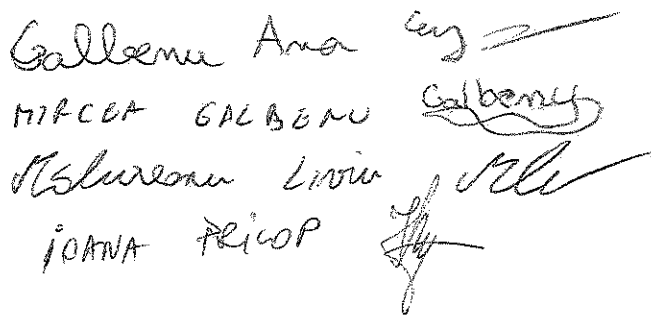 Galbenu Ana
MIRCEA GALBENU Galbenu
Liviu
IOANA PRICOP